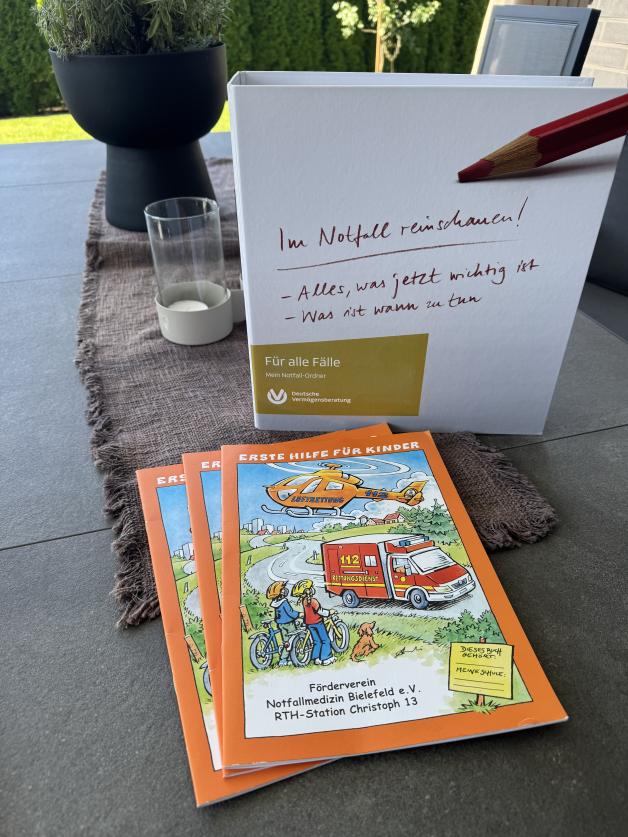 Im Notfall reinschauen!
- Alles, was jetzt wichtig ist
- Was ist wann zu tun
Für alle Fälle
Mein Notfall-Ordner
Deutsche
Vermögensberatung
ERSTE HILFE FÜR KINDER
ERS
ER
112
LUFTRETTUNG
112
RETTUNGSDIENST
DIESES BUCH
GEHÖRT:
MEINE SCHULE:
Förderverein
Notfallmedizin Bielefeld e.V.
RTH-Station Christoph 13